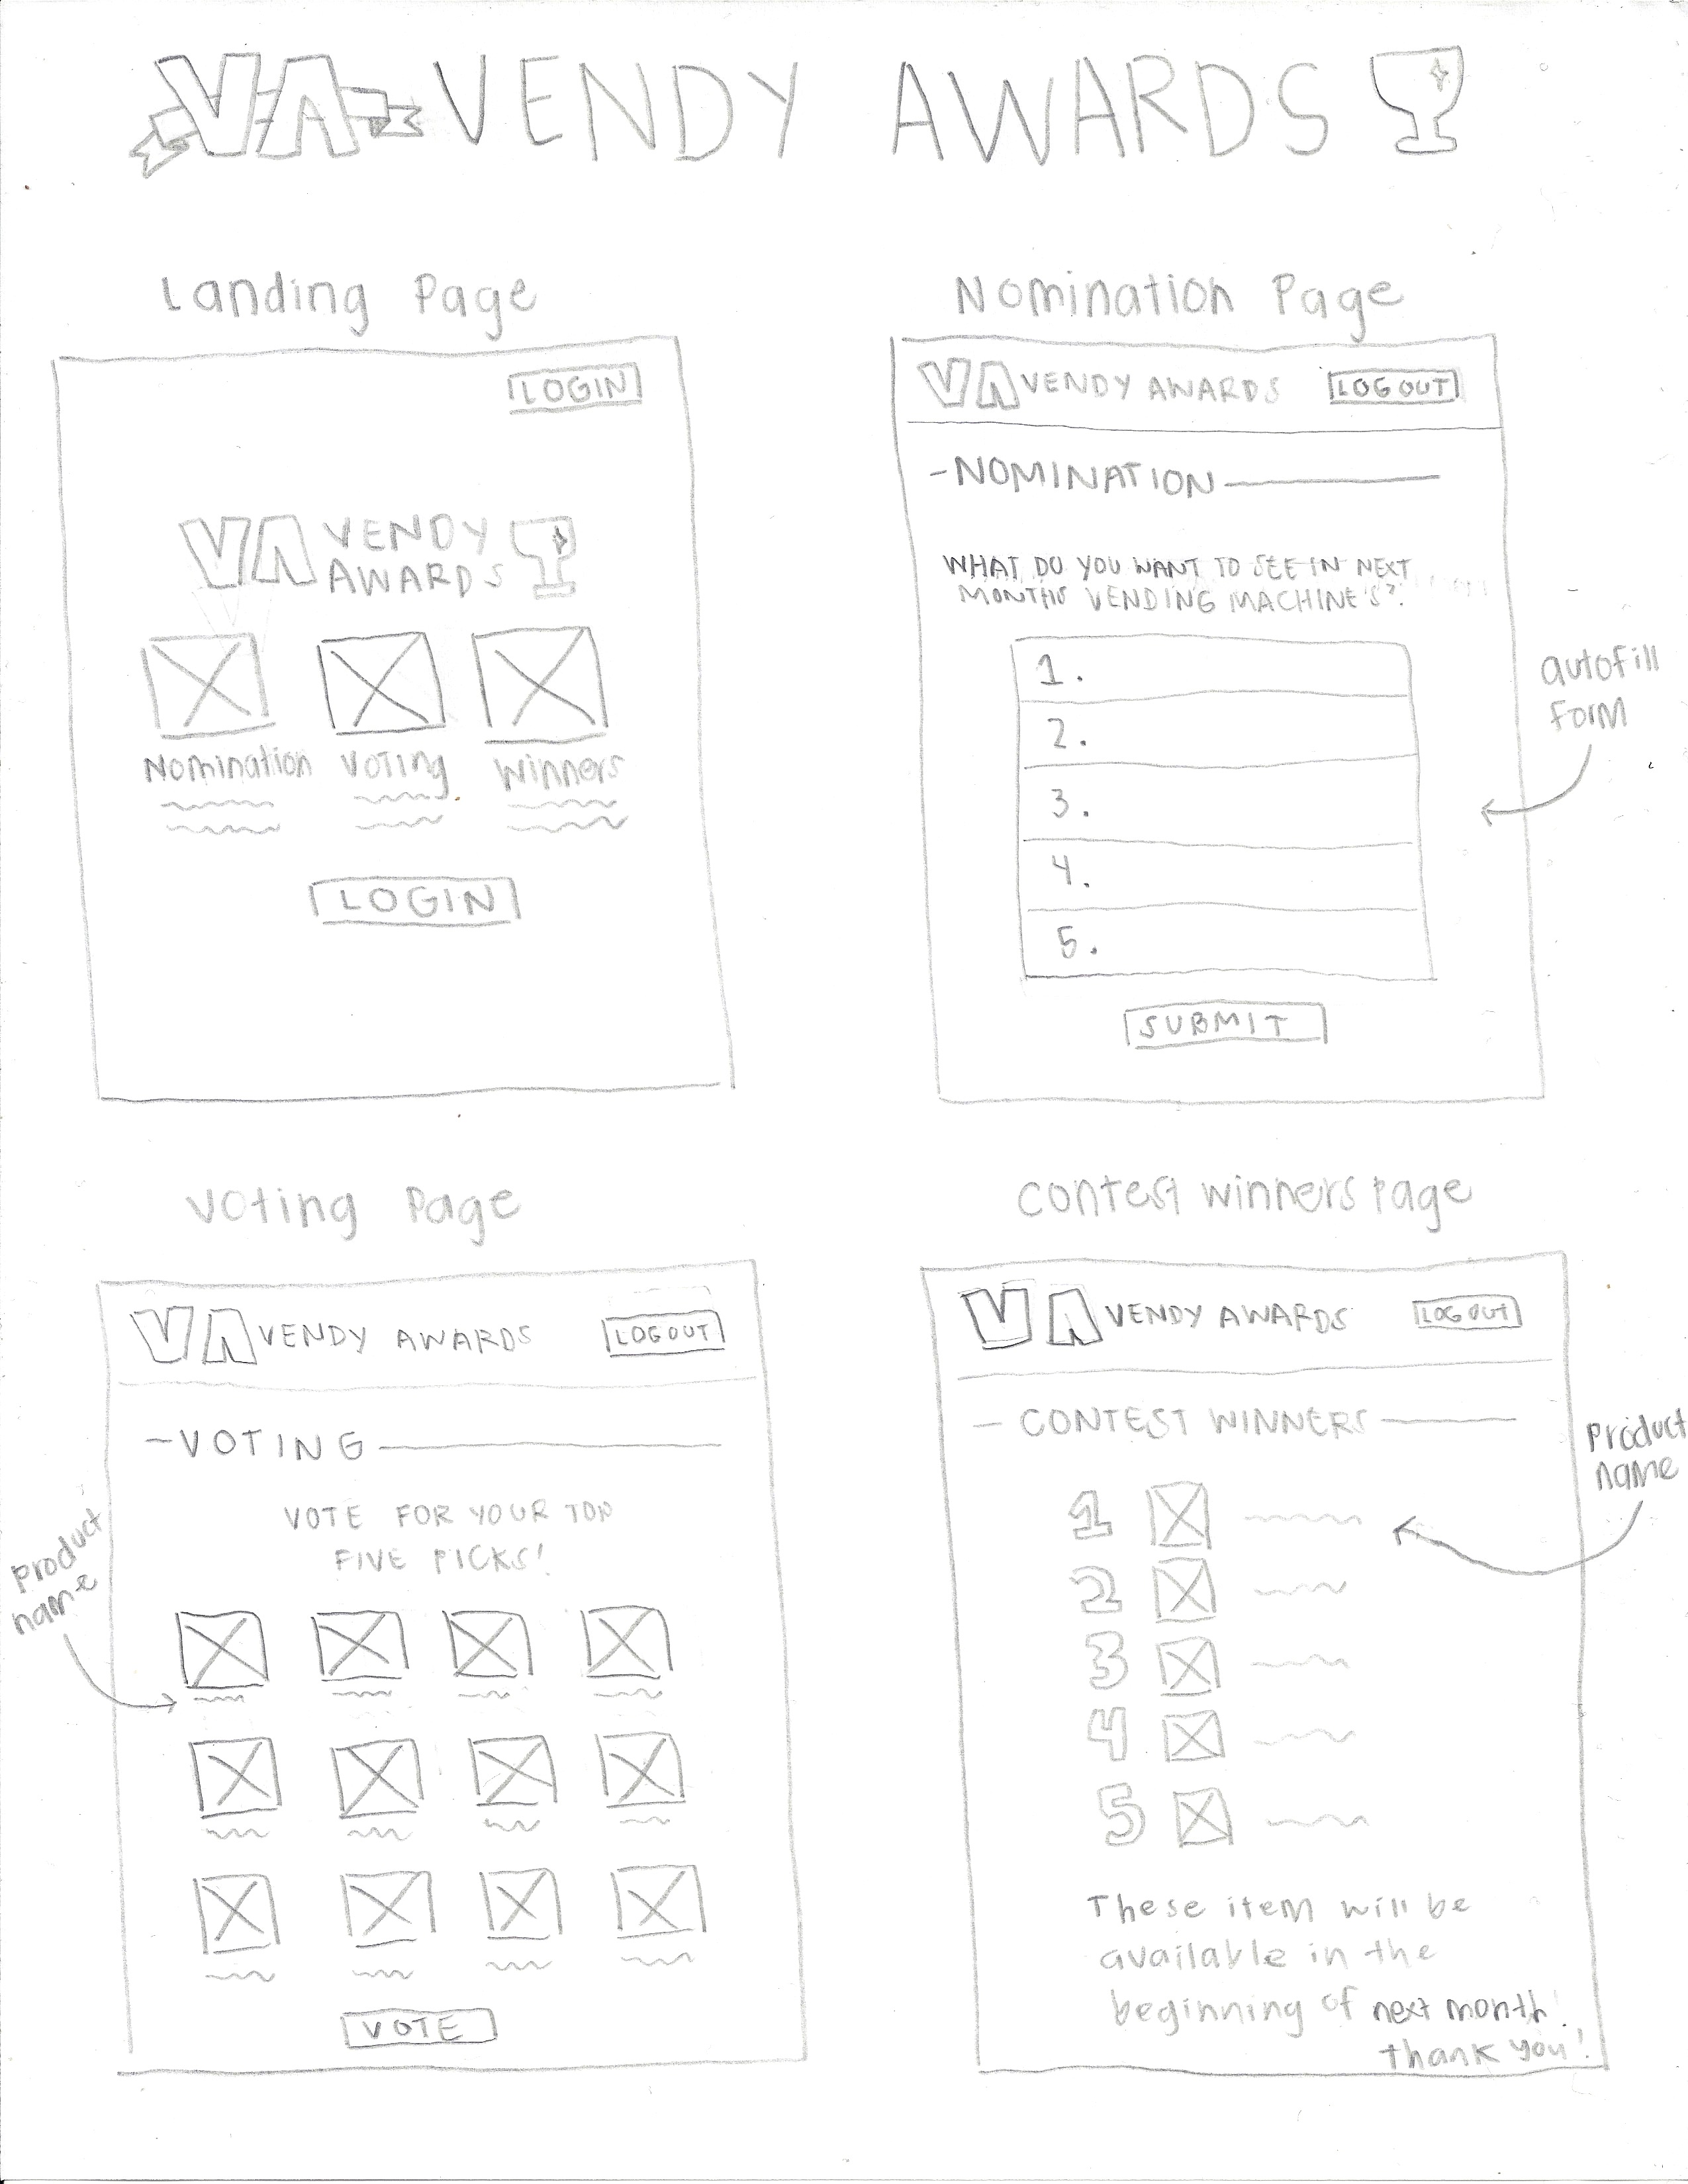 VA VENDY AWARDS
Landing Page
LOGIN
VA VENDY
AWARDS
Nomination Voting Winners
LOGIN
Nomination Page
VA VENDY AWARDS LOGOUT
-NOMINATION
WHAT DO YOU WANT TO SEE IN NEXT
MONTHS VENDING MACHINE'S?
1.
2.
3.
4.
5.
SUBMIT
autofill
form
Voting Page
VA VENDY AWARDS LOGOUT
-VOTING
VOTE FOR YOUR TOP
FIVE PICKS!
product
name
VOTE
Contest winners page
VA VENDY AWARDS LOGOUT
- CONTEST WINNERS
1
2
3
4
5
product
name
These item will be
available in the
beginning of next month!
thank you!